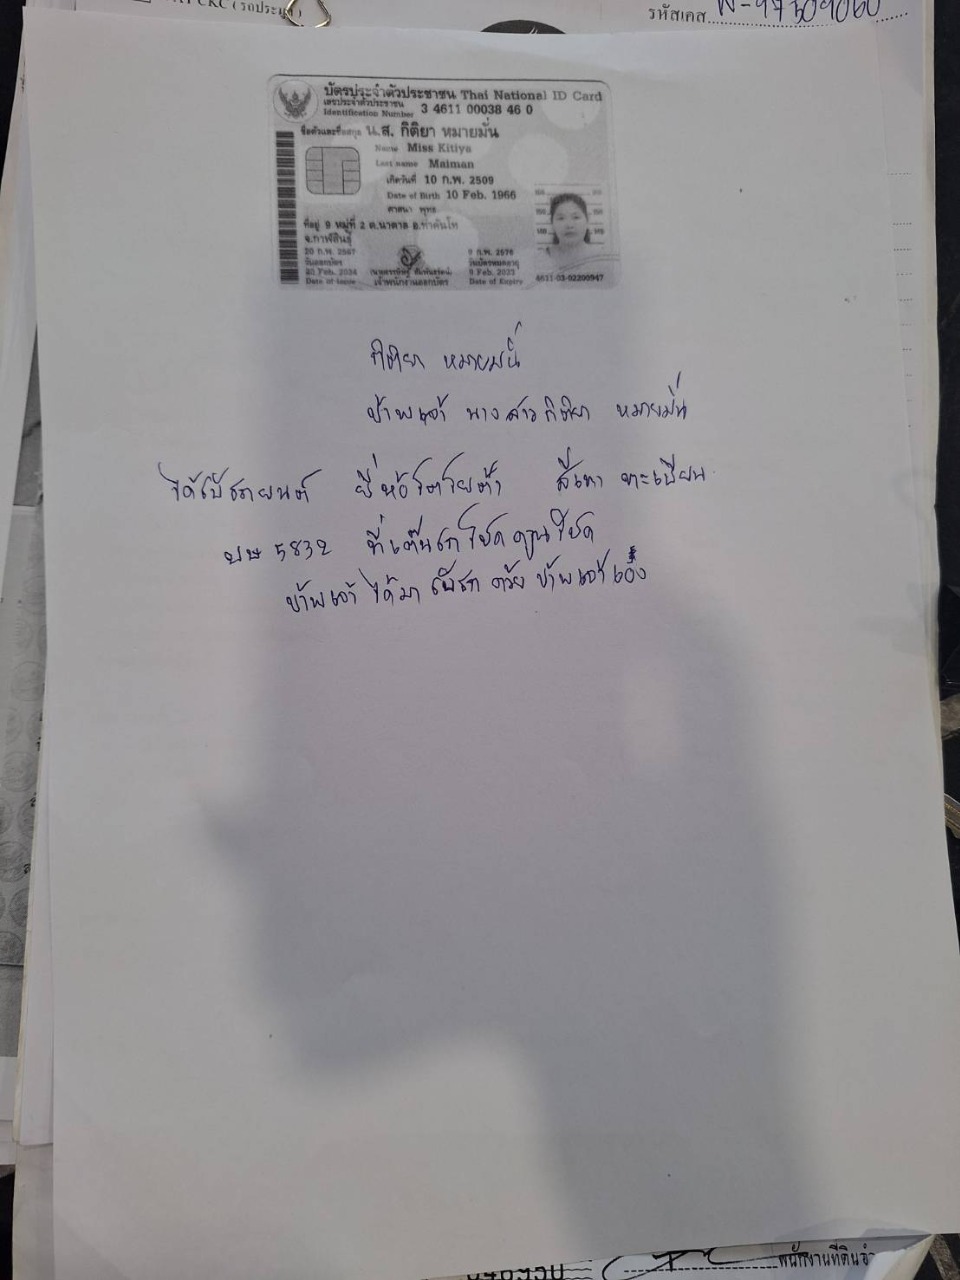 (รถประมูล)
รหัสเคส
บัตรประจำตัวประชาชน Thai National ID Card
เลขประจำตัวประชาชน
Identification Number 3 4611 00038 46 0
ชื่อตัวและชื่อสกุล น.ส. กิติยา หมายมั่น
Name Miss Kitiya
Last name Maiman
เกิดวันที่ 10 ก.พ. 2509
Date of Birth 10 Feb. 1966
ศาสนา พุทธ
ที่อยู่ 9 หมู่ที่ 2 ต.นาตาล อ.ท่าคันโท
จ.กาฬสินธุ์
วันออกบัตร
Date of Issue
เจ้าพนักงานออกบัตร
วันบัตรหมดอายุ
Date of Expiry
4611-03-02200947
กิติยา หมายมั่น
ข้าพเจ้า นางสาวกิติยา หมายมั่น
ได้รถยนต์ ยี่ห้อโตโยต้า สีเทา ทะเบียน
5832 ที่เต็นรถโชค โชค
ข้าพเจ้า ได้มา รถ ด้วย ข้าพเจ้าเอง
พนักงานที่ดิน